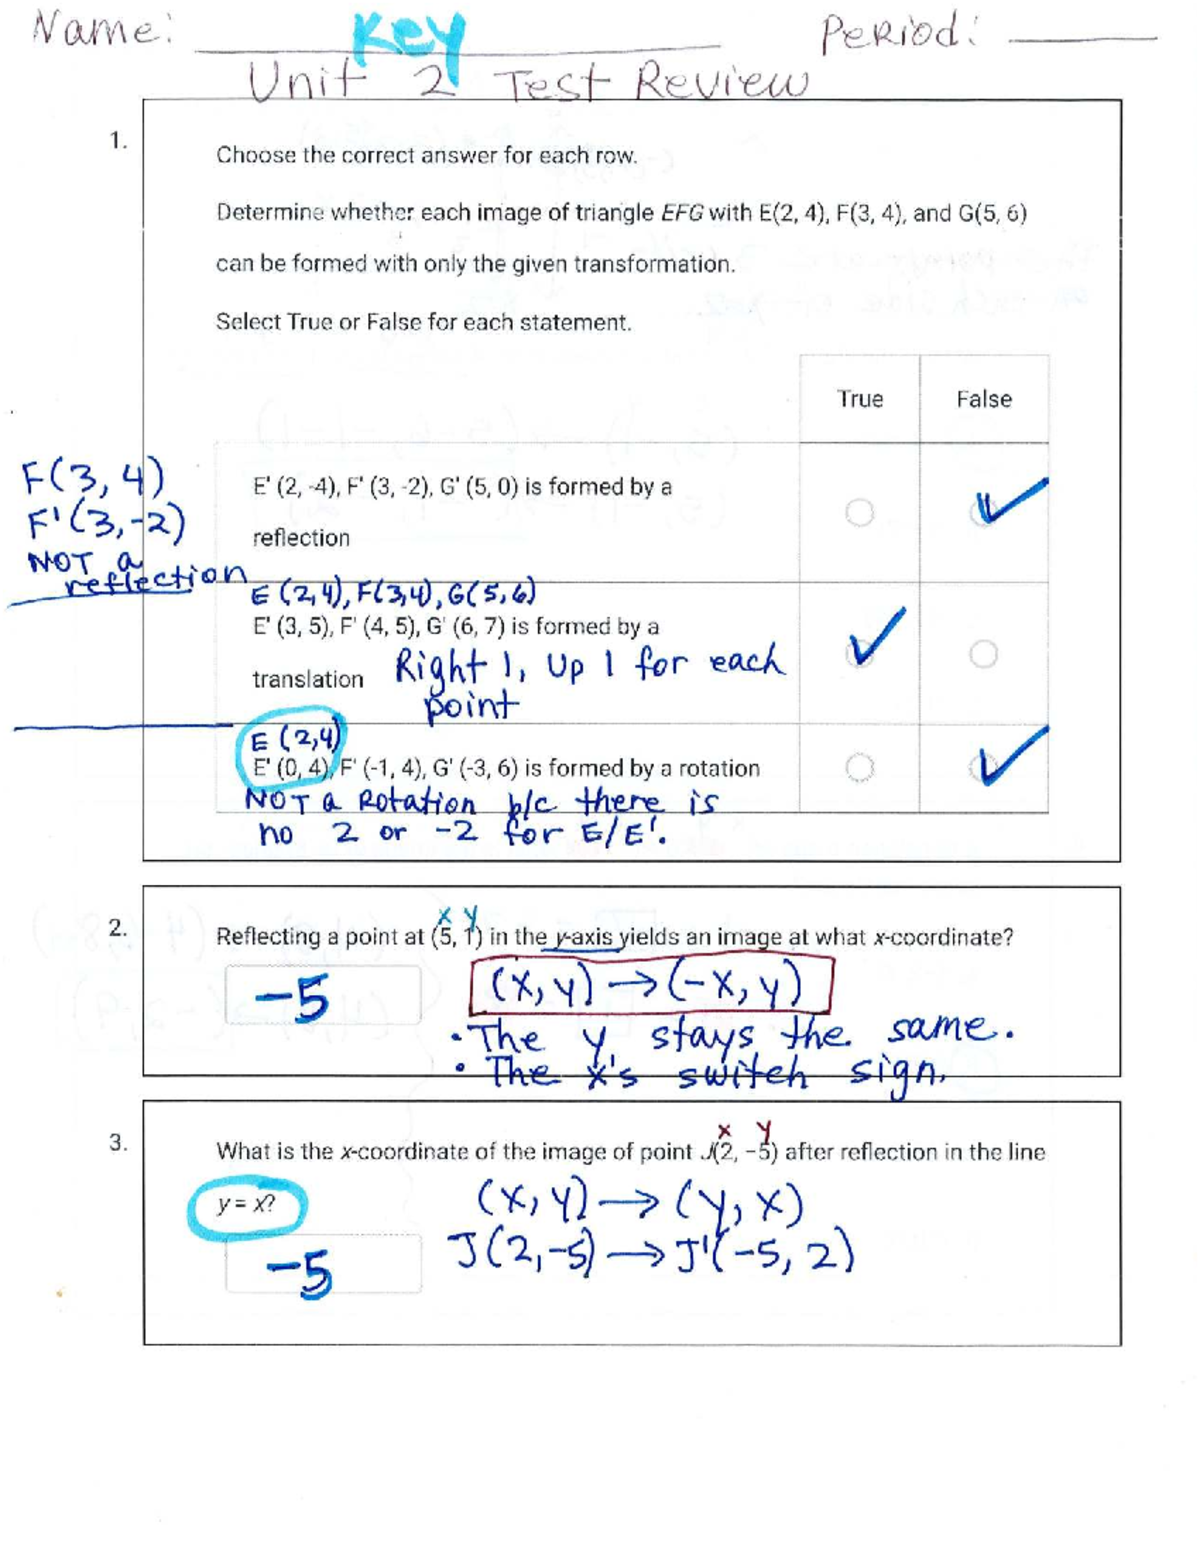 Name: Key Period:
Unit 2 Test Review
1.
Choose the correct answer for each row.
Determine whether each image of triangle EFG with E(2, 4), F(3, 4), and G(5, 6)
can be formed with only the given transformation.
Select True or False for each statement.
True False
F(3, 4)
F'(3,-2)
NOT a
reflection
E' (2, -4), F' (3, -2), G' (5, 0) is formed by a
reflection
E (2,4), F(3,4), G(5,6)
E' (3, 5), F' (4, 5), G' (6, 7) is formed by a
translation Right 1, Up 1 for each
point
E (2,4)
E' (0, 4), F' (-1, 4), G' (-3, 6) is formed by a rotation
NOT a Rotation b/c there is
no 2 or -2 for E/E'.
2.
x y
Reflecting a point at (5, 1) in the y-axis yields an image at what x-coordinate?
-5 (x, y) → (-x, y)
• The y stays the same.
• The x's switch sign.
3.
x y
What is the x-coordinate of the image of point J(2, -5) after reflection in the line
y = x? (x, y) → (y, x)
J(2,-5) → J'(-5, 2)
-5